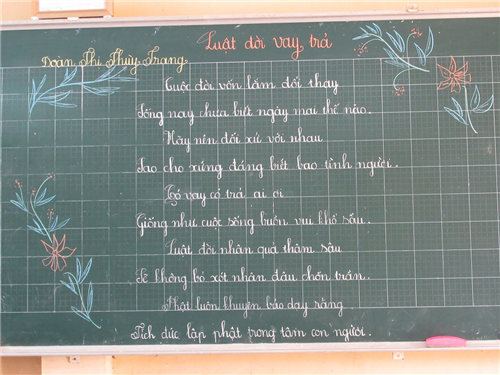 Luật đời vay trả
Đoàn Thị Thuỳ Trang
Cuộc đời vốn lắm đổi thay
Sống nay chưa biết ngày mai thế nào.
Hãy nên đối xử với nhau
Sao cho xứng đáng biết bao tình người.
Có vay có trả ai ơi
Giống như cuộc sống buồn vui khổ sầu.
Luật đời nhân quả thâm sâu
Sẽ không bỏ xót nhân đâu chốn trần.
Phật luôn khuyên bảo dạy rằng
Tích đức lập phật trong tâm con người.